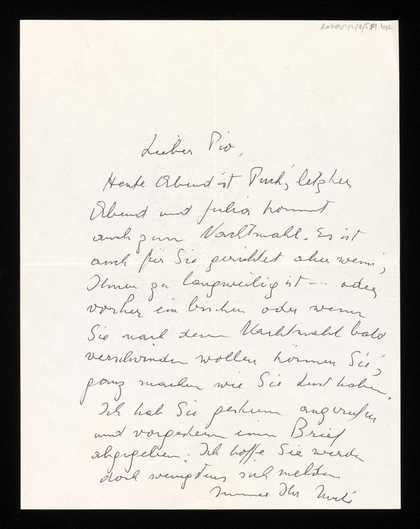 Lieber Pio,
Heute Abend ist Puck's letzter
Abend und Julia kommt
auch zum Nachtmahl. Es ist
auch für Sie gerichtet aber wenn's
Ihnen zu langweilig ist -- oder
vorher ein bischen oder wenn
Sie nach dem Nachtmahl bald
verschwinden wollen können Sie's
ganz machen wie Sie Lust haben.
Ich hab Sie gestern angerufen
und vorgestern einen Brief
abgegeben. Ich hoffe Sie werden
doch wenigstens sich melden
Immer Ihr